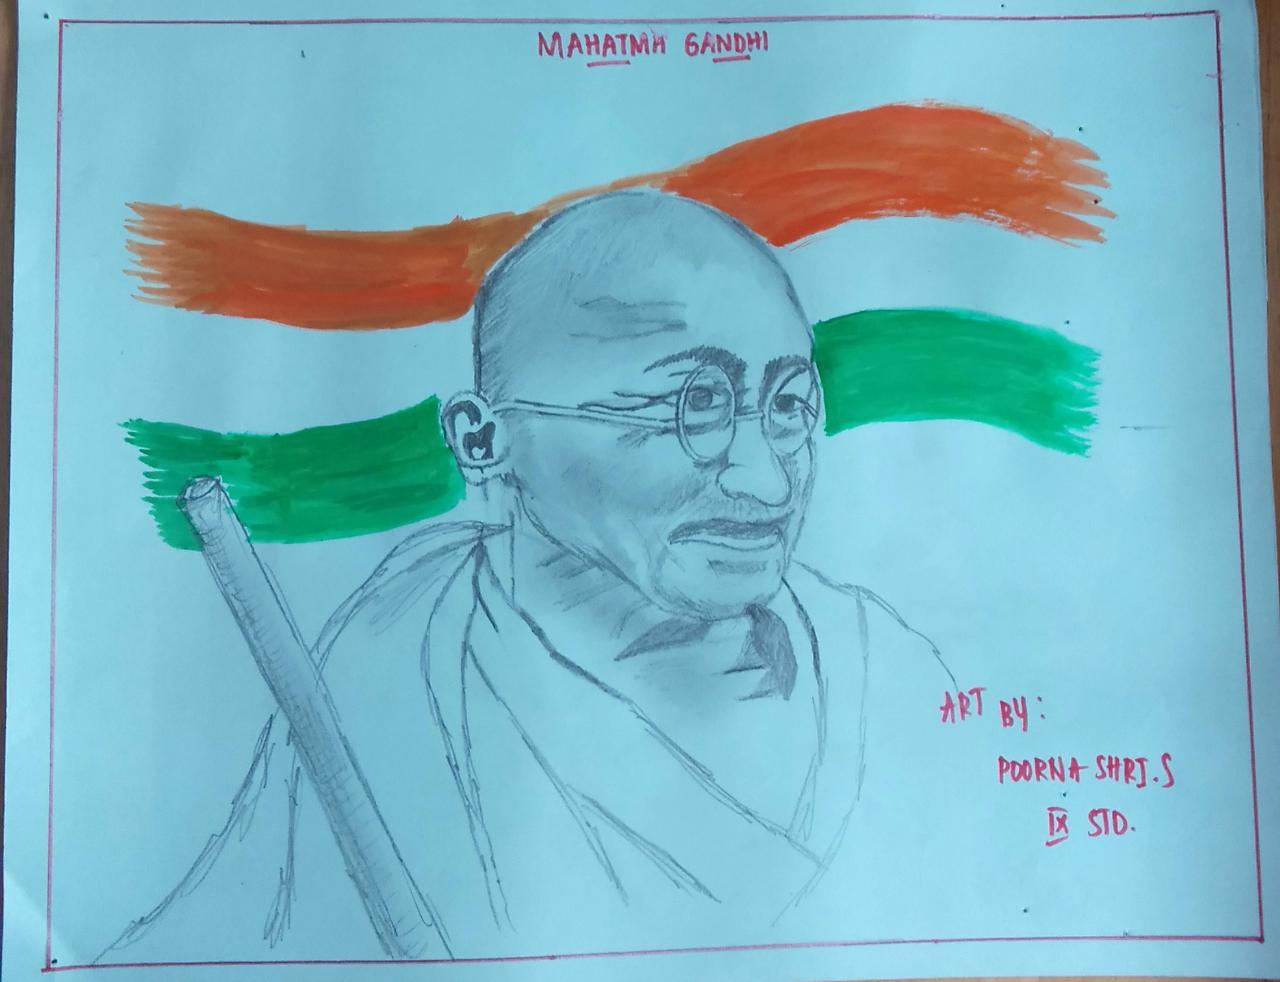 MAHATMA GANDHI
ART BY:
POORNA SHRI.S
IX STD.